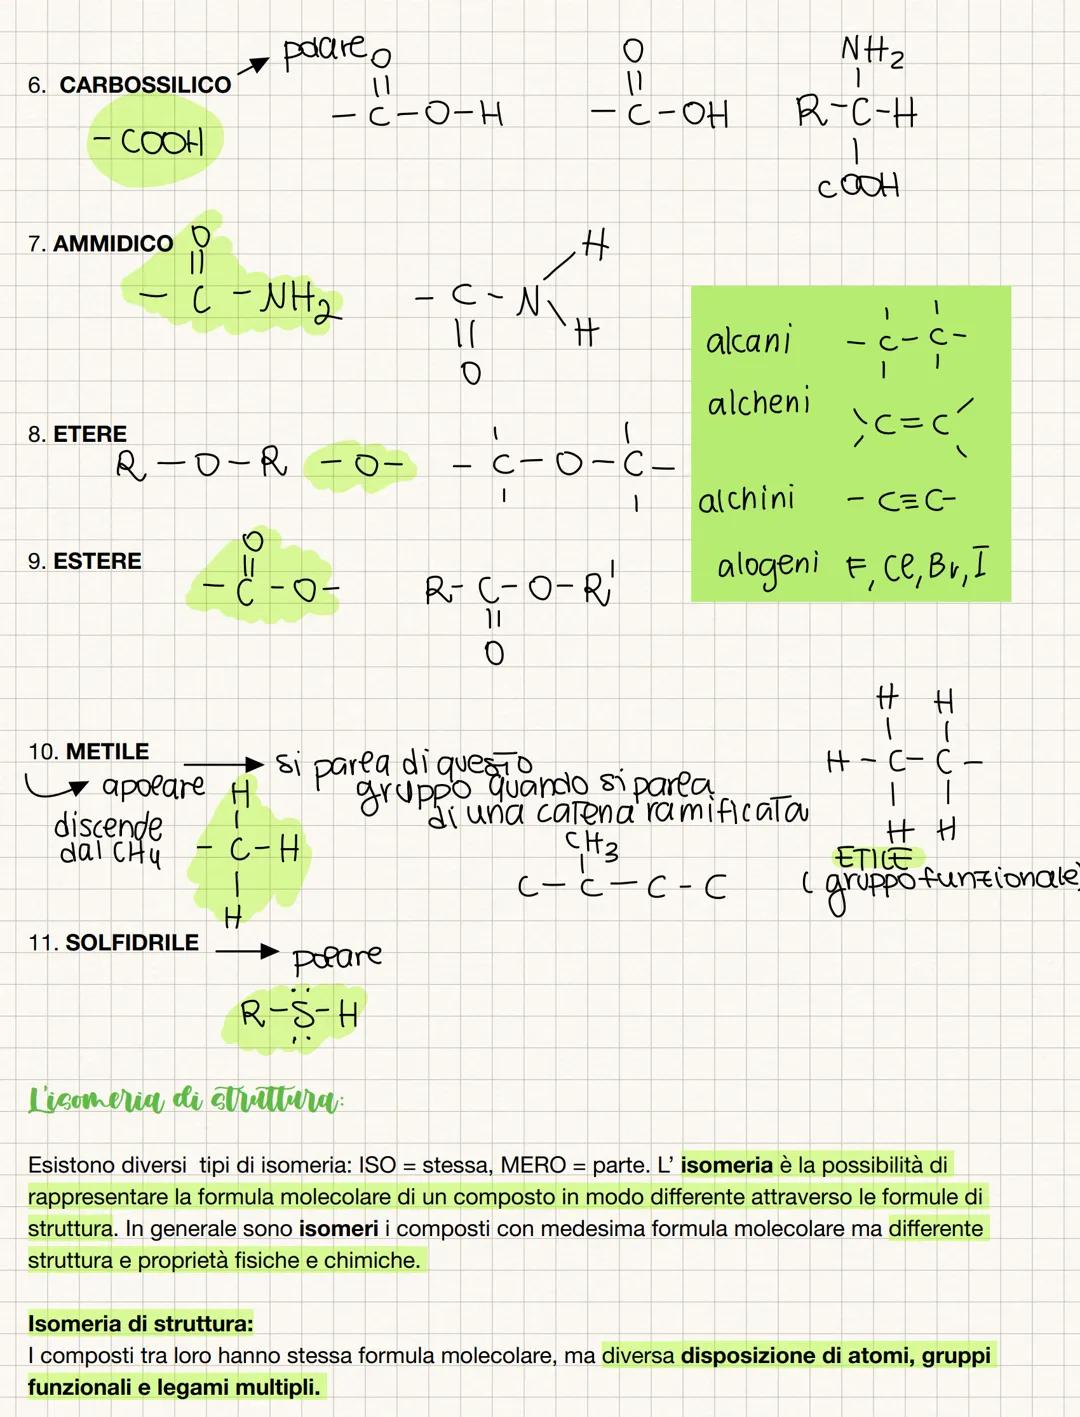 6. CARBOSSILICO → polare
- COOH
O
||
- C - O - H
O
||
- C - OH
NH2
|
R - C - H
|
COOH
7. AMMIDICO
O
||
- C - NH2
H
- C - N
|| H
O
8. ETERE
R - O - R - O - - C - O - C -
9. ESTERE
O
||
- C - O -
R - C - O - R'
||
O
alcani - C - C -
alcheni C = C
alchini - C ≡ C -
alogeni F, Cl, Br, I
10. METILE → si parla di questo
gruppo quando si parla
di una catena ramificata
apolare
discende
dal CH4
H
|
- C - H
|
H
CH3
|
C - C - C - C
H H
| |
H - C - C -
| |
H H
ETILE
( gruppo funzionale)
11. SOLFIDRILE → polare
R - S - H
L'isomeria di struttura:
Esistono diversi tipi di isomeria: ISO = stessa, MERO = parte. L' isomeria è la possibilità di
rappresentare la formula molecolare di un composto in modo differente attraverso le formule di
struttura. In generale sono isomeri i composti con medesima formula molecolare ma differente
struttura e proprietà fisiche e chimiche.
Isomeria di struttura:
I composti tra loro hanno stessa formula molecolare, ma diversa disposizione di atomi, gruppi
funzionali e legami multipli.